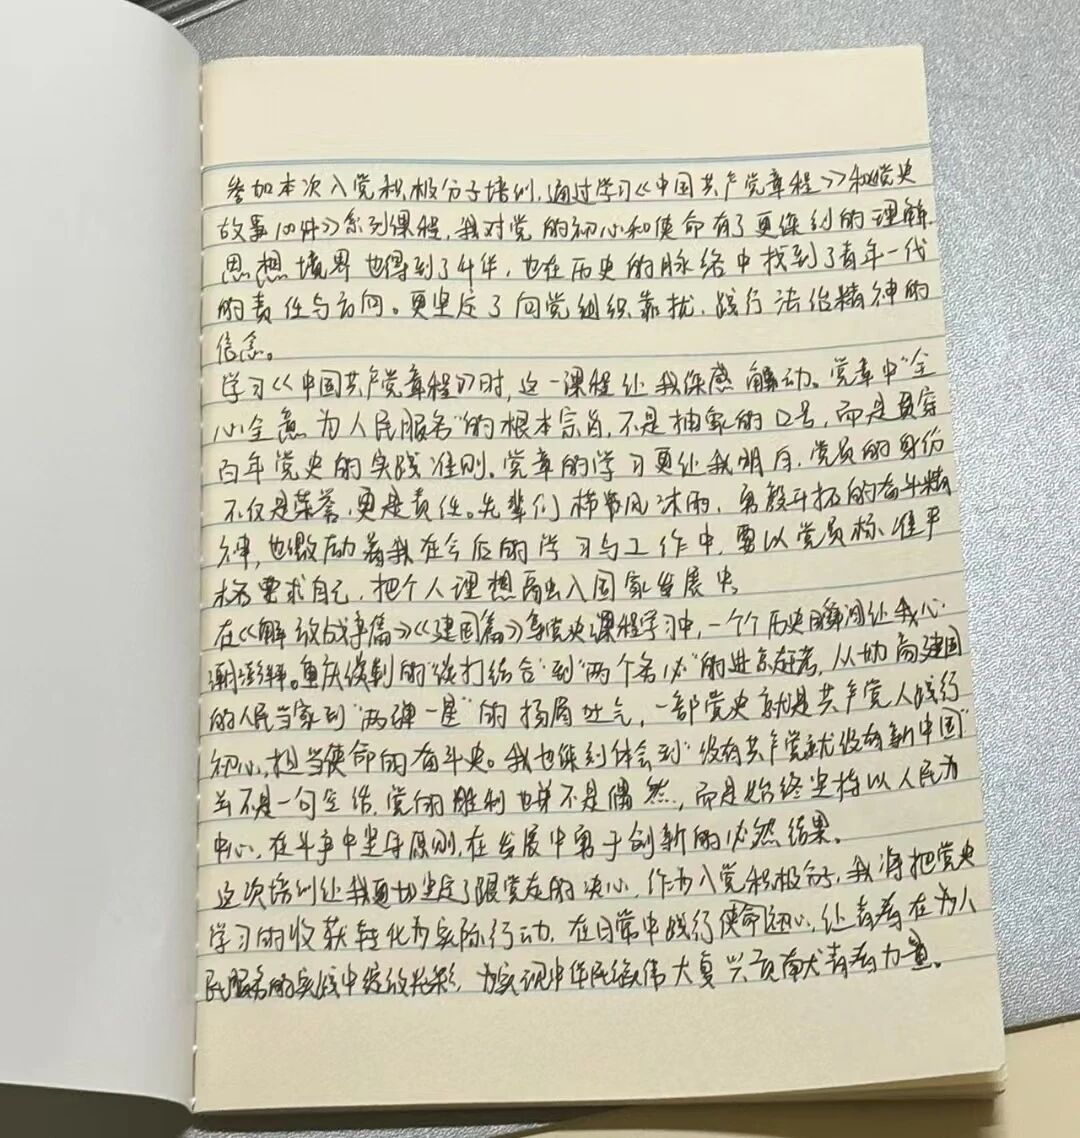 参加本次入党积极分子培训,通过学习《中国共产党章程》和《党史
故事100件》系列课程,我对党的初心和使命有了更深刻的理解.
思想境界也得到了升华,也在历史的脉络中找到了青年一代
的责任与方向。更坚定了向党组织靠拢、践行法治精神的
信念。
学习《中国共产党章程》时,这一课程让我深感触动。党章中"全
心全意为人民服务"的根本宗旨,不是抽象的口号,而是贯穿
百年党史的实践准则。党章的学习更让我明白,党员的身份
不仅是荣誉,更是责任。先辈们栉风沐雨,勇毅开拓的奋斗精
神,也激励着我在今后的学习与工作中,要以党员标准严
格要求自己,把个人理想融入国家发展中。
在《解放战争篇》《建国篇》等党史课程学习中,一个个历史瞬间让我心
潮澎湃。重庆谈判的"谈打结合"到"两个务必"的进京赶考,从协商建国
的人民当家到"两弹一星"的扬眉吐气,一部党史就是共产党人践行
初心,担当使命的奋斗史。我也深刻体会到"没有共产党就没有新中国"
并不是一句空话,党的胜利也并不是偶然,而是始终坚持以人民为
中心,在斗争中坚守原则,在发展中勇于创新的必然结果。
这次培训让我更加坚定了跟党走的决心,作为入党积极分子,我将把党史
学习的收获转化为实际行动,在日常中践行使命初心,让青春在为人
民服务的实践中绽放光彩,为实现中华民族伟大复兴贡献青春力量。